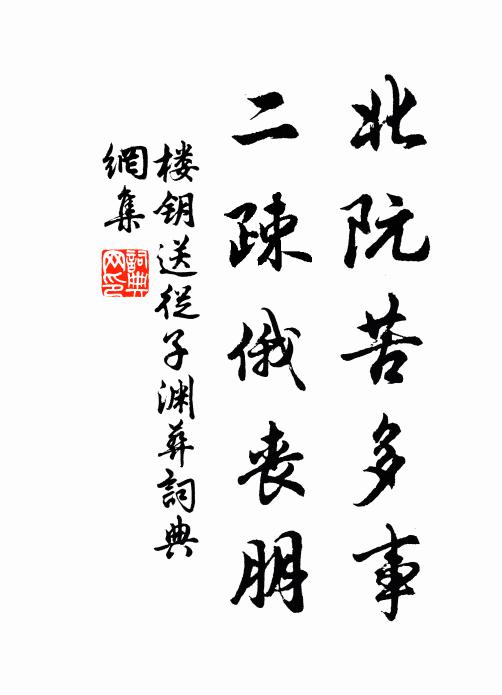 北阮苦多事
二疎俄丧朋
楼钥送從子渊葬詞典
網集
詞典
网印